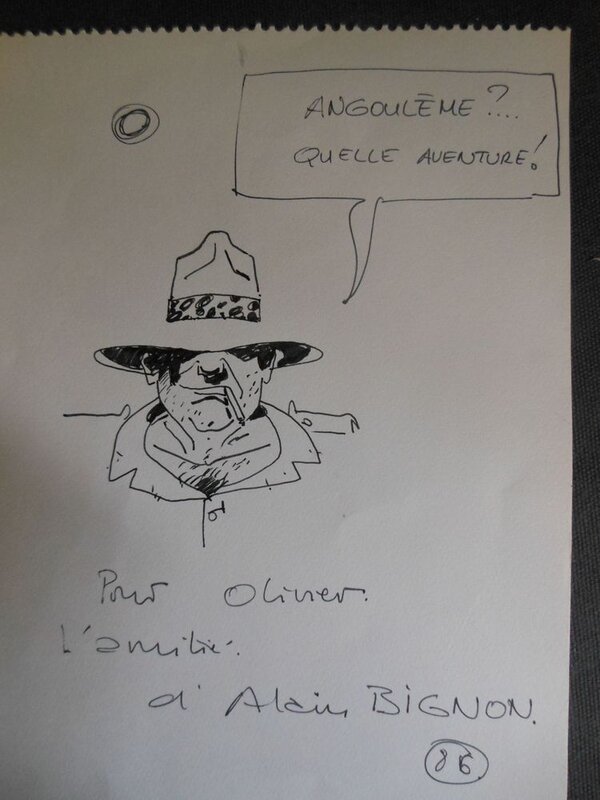 ANGOULÊME ?....
QUELLE AVENTURE!
Pour Olivier.
L'amitié.
d'Alain BIGNON.
86